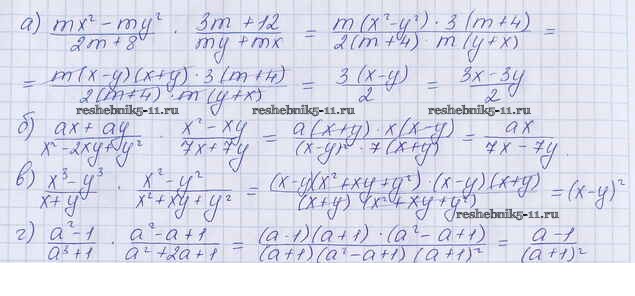 а) (mx² - my²)/(2m + 8) · (3m + 12)/(my + mx) = (m(x² - y²) · 3(m + 4))/(2(m + 4) · m(y + x)) =
= (m(x - y)(x + y) · 3(m + 4))/(2(m + 4) · m(y + x)) = (3(x - y))/2 = (3x - 3y)/2
reshebnik5-11.ru reshebnik5-11.ru
б) (ax + ay)/(x² - 2xy + y²) · (x² - xy)/(7x + 7y) = (a(x + y) · x(x - y))/((x - y)² · 7(x + y)) = ax/(7x - 7y).
в) (x³ - y³)/(x + y) · (x² - y²)/(x² + xy + y²) = ((x - y)(x² + xy + y²) · (x - y)(x + y))/((x + y) (x² + xy + y²)) = (x - y)²
reshebnik5-11.ru
г) (a² - 1)/(a³ + 1) · (a² - a + 1)/(a² + 2a + 1) = ((a - 1)(a + 1) · (a² - a + 1))/((a + 1)(a² - a + 1)(a + 1)²) = (a - 1)/(a + 1)²